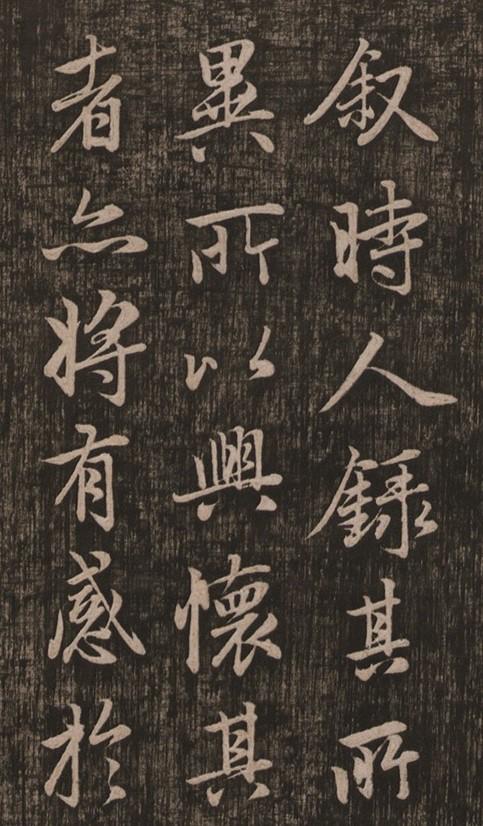 叙時人錄其所
異所以興懷其
者亦將有感於